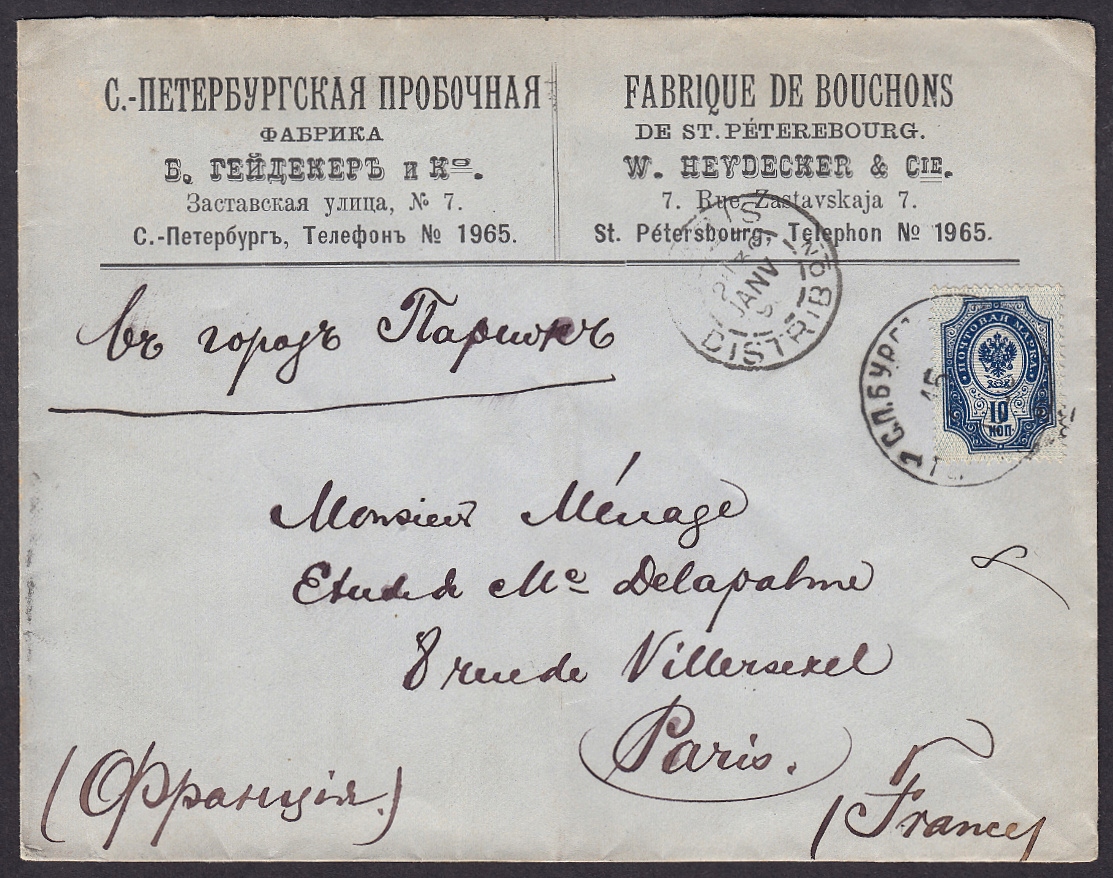 С.-ПЕТЕРБУРГСКАЯ ПРОБОЧНАЯ
ФАБРИКА
Б. ГЕЙДЕКЕРЪ и Ко.
Заставская улица, № 7.
С.-Петербургъ, Телефонъ № 1965.
FABRIQUE DE BOUCHONS
DE ST. PÉTEREBOURG.
W. HEYDECKER & CIE.
7. Rue Zastavskaja 7.
St. Pétersbourg, Telephon No 1965.
DISTRIBON
JANV
ПОЧТОВАЯ МАРКА
10
КОП
С.П.БУРГ
15
въ городъ Парижъ
Monsieur Ménage
Etude de Me Delapalme
8 rue de Villersexel
Paris.
(Франція.)
(France)